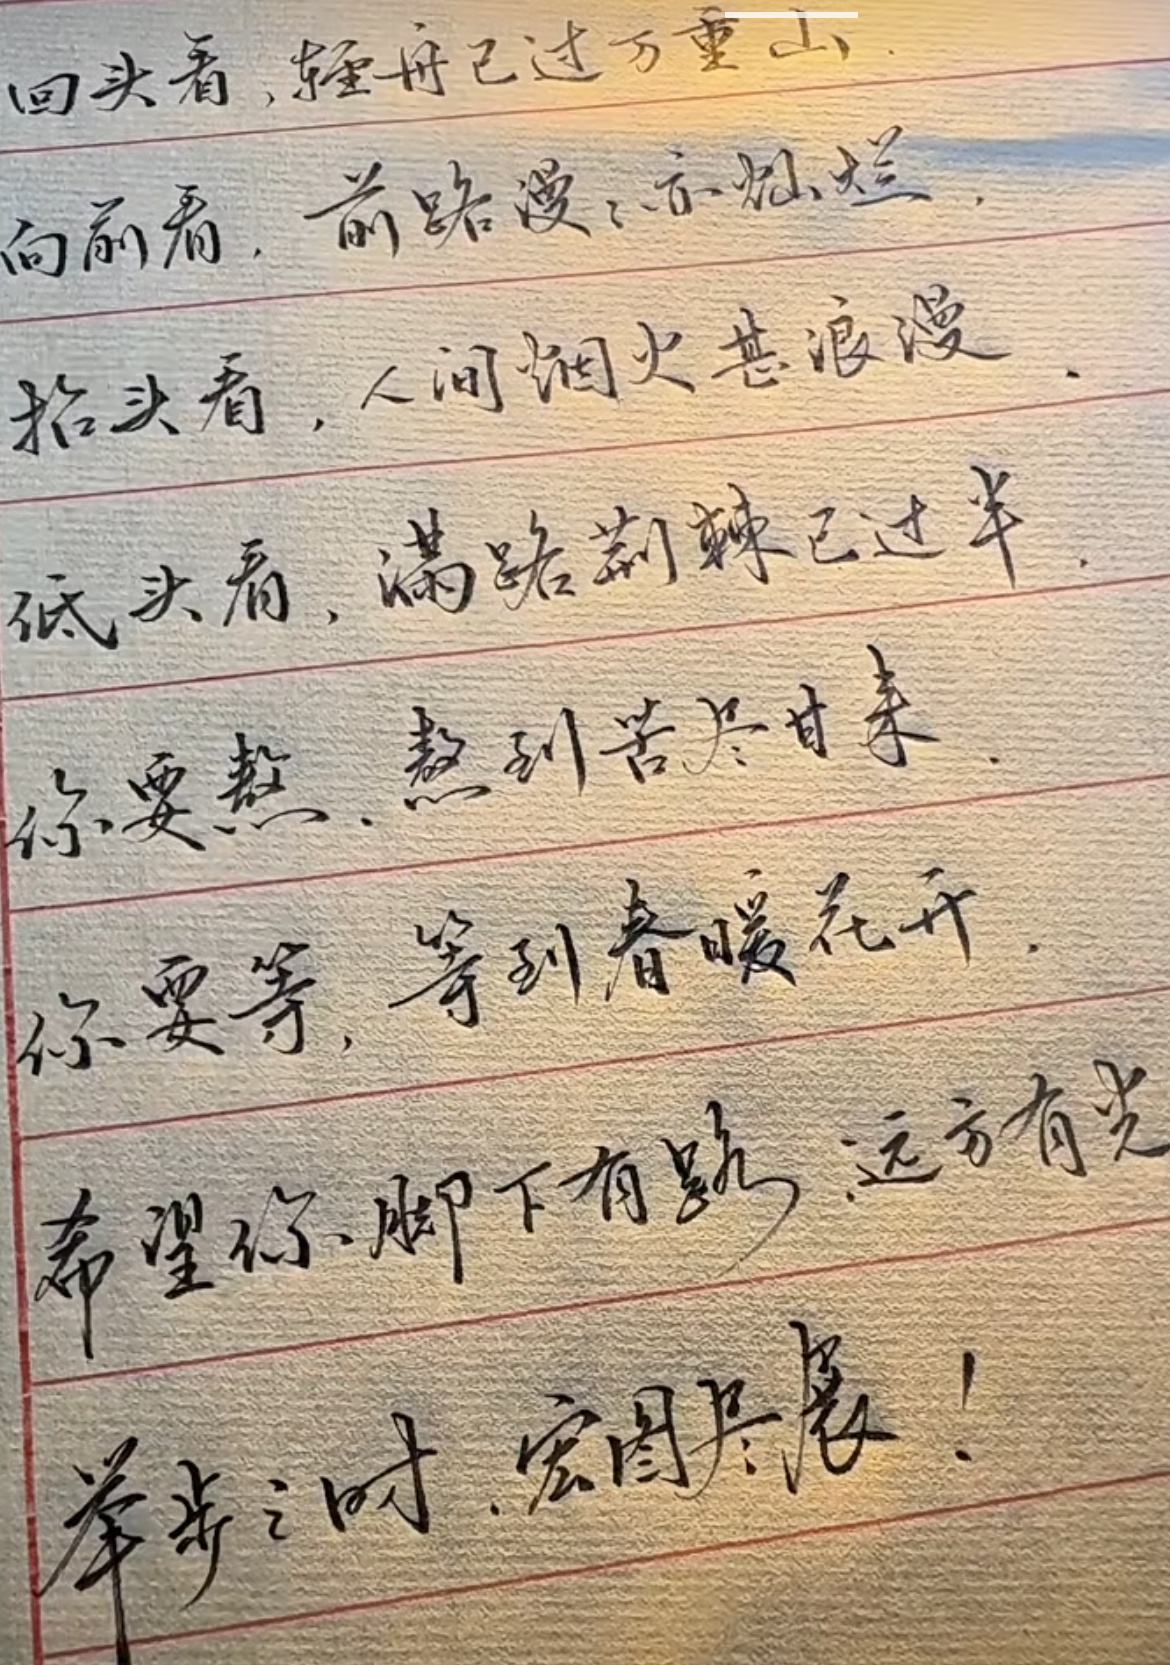 回头看,轻舟已过万重山.
向前看,前路漫漫亦灿烂.
抬头看,人间烟火甚浪漫.
低头看,满路荆棘已过半.
你要熬,熬到苦尽甘来.
你要等,等到春暖花开.
希望你脚下有路,远方有光
举步之时,宏图尽展!